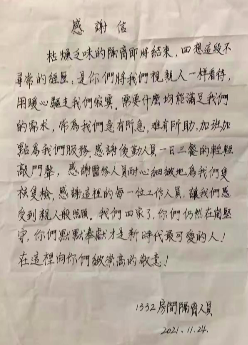 感谢信
枯燥乏味的隔离即将结束，回想这段不
寻常的经历，是你们将我们视亲人一样看待，
用暖心驱走我们寂寞，需要什么均能满足我们
的需求，你为我们急有所急，难有所助，加班加
点为我们服务，感谢后勤人员一日三餐的轻轻
敲门声，感谢医务人员耐心细致地为我们笑
核复检，感谢这里的每一位工作人员，让我们感
受到亲人般照顾。我们回家了，你们仍然在岗坚
守，你们默默奉献才是新时代最可爱的人！
在这里向你们致崇高的敬意！
1332房间隔离人员
2021.11.24.